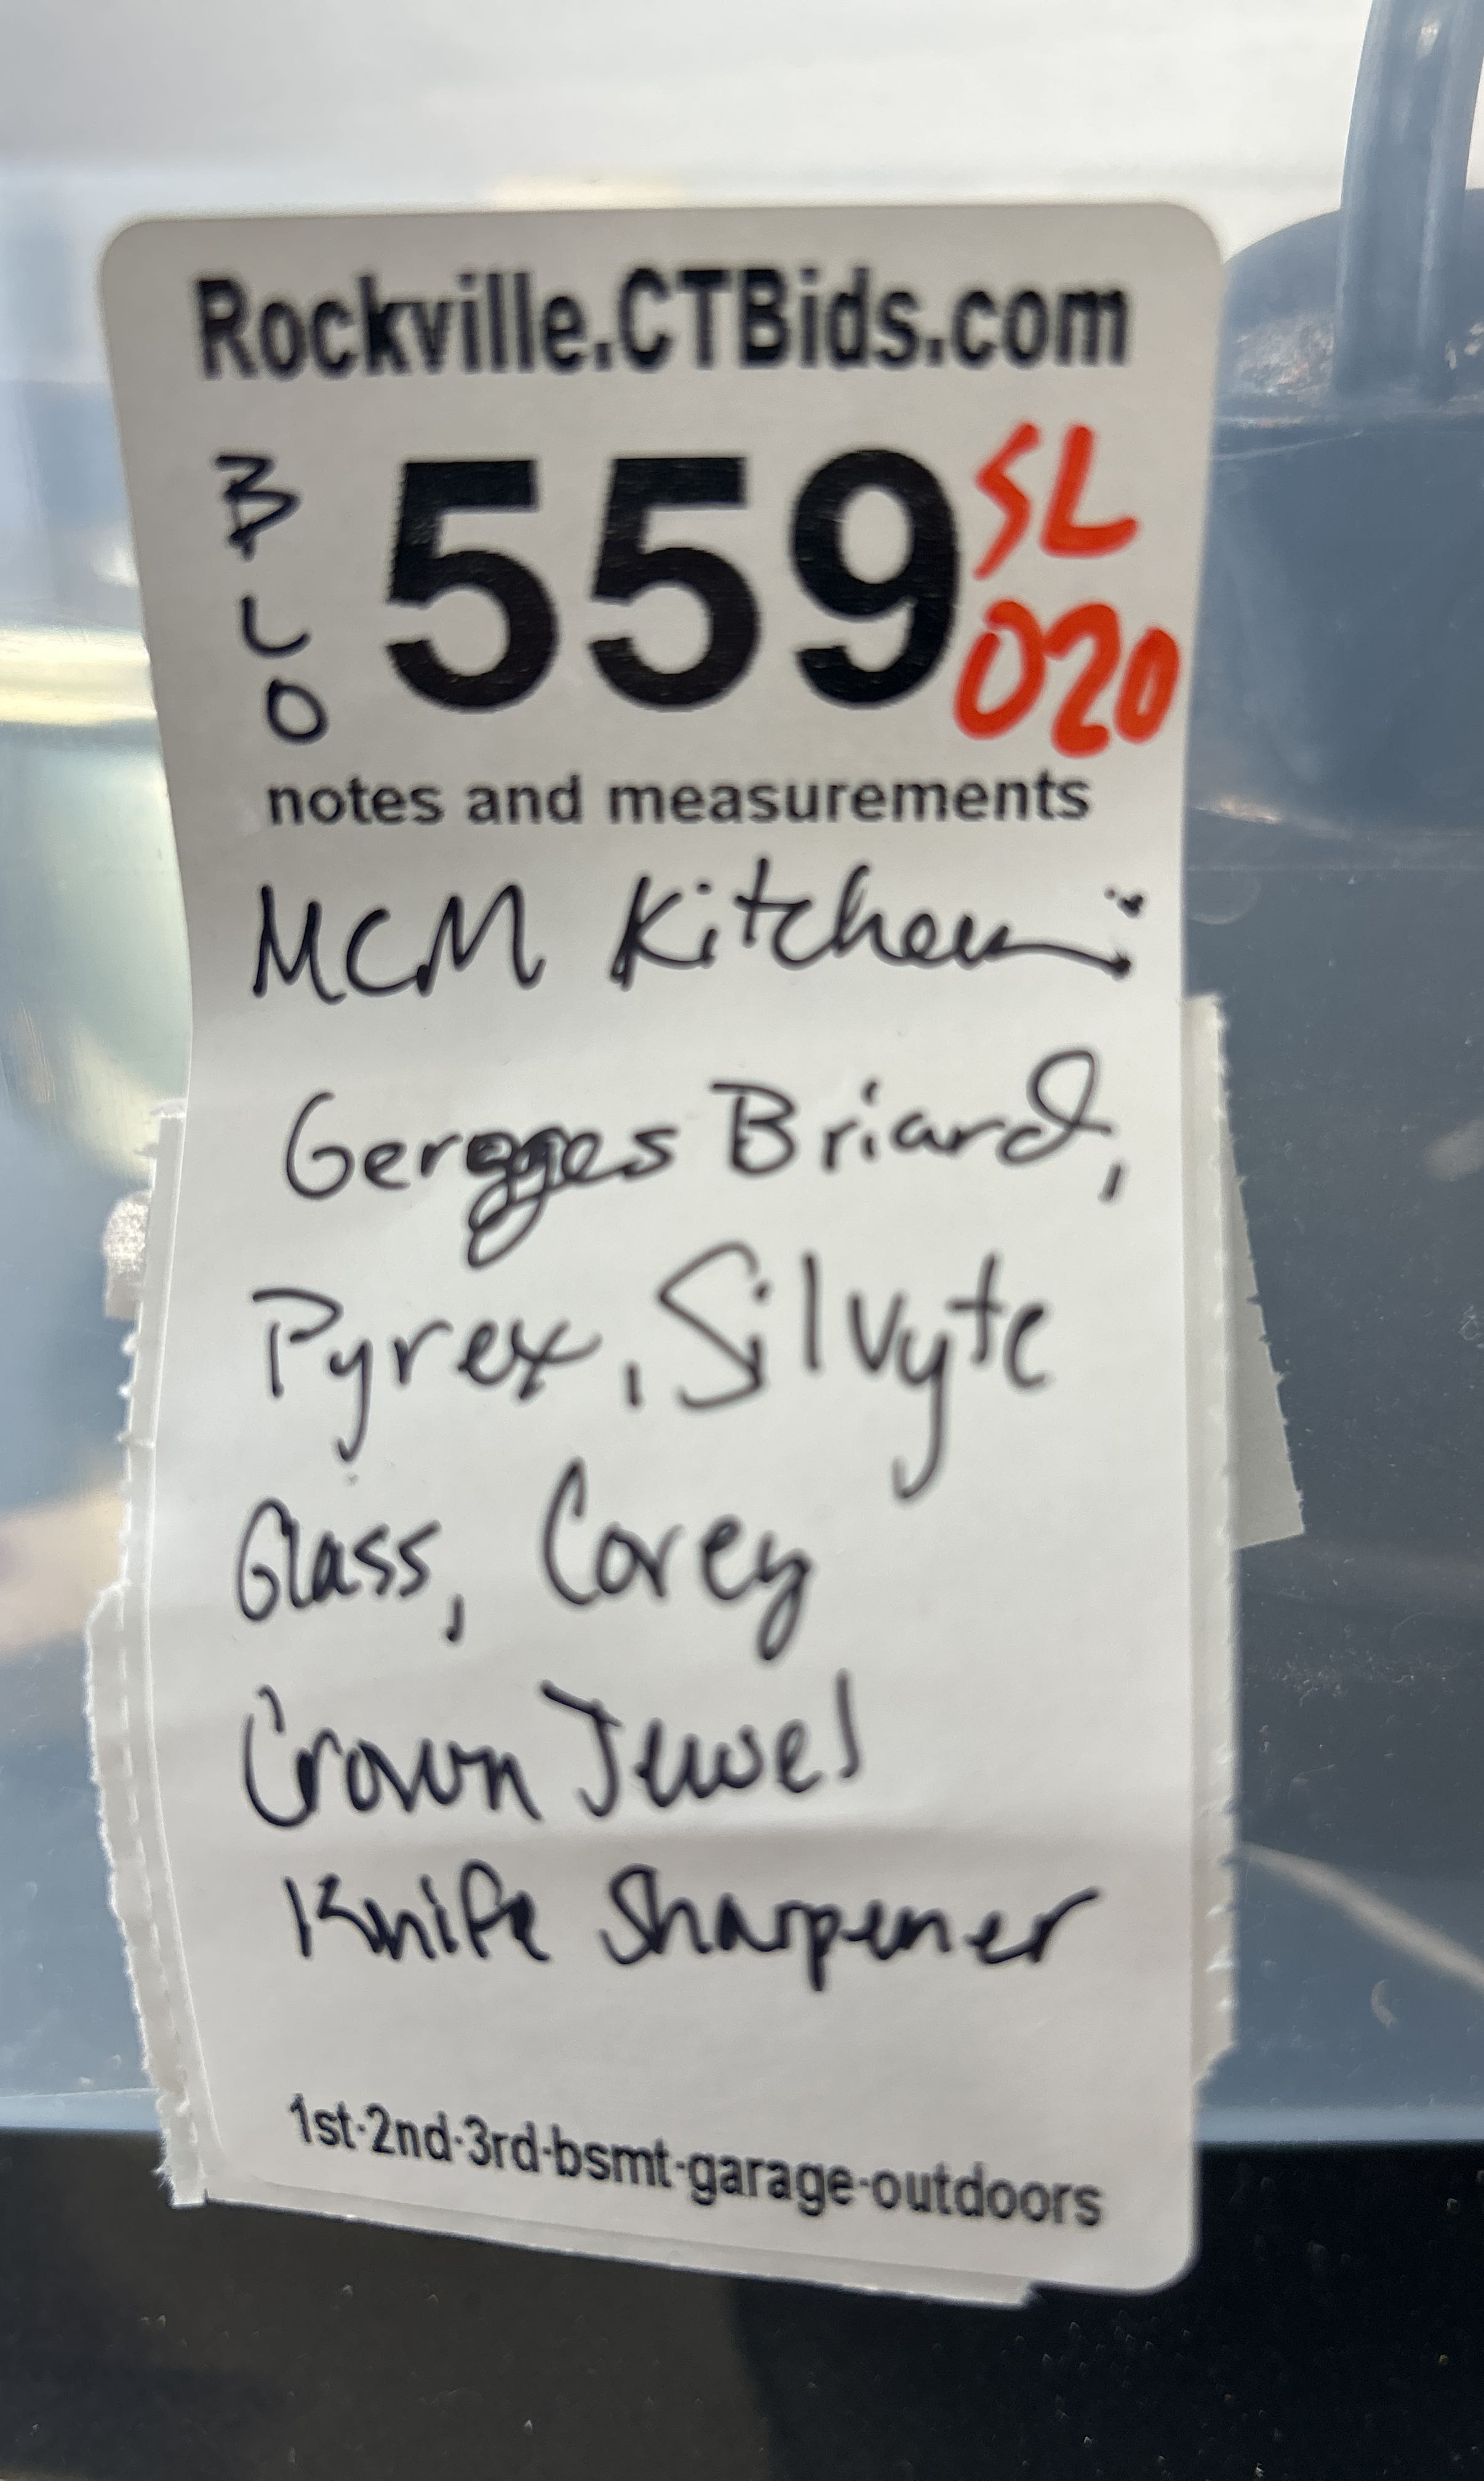 Rockville.CTBids.com
B
L
O
559
SL
020
notes and measurements
MCM Kitchen:
Gergges Briard,
Pyrex, Silvyte
Glass, Corey
Crown Jewel
Knife Sharpener
1st-2nd-3rd-bsmt-garage-outdoors